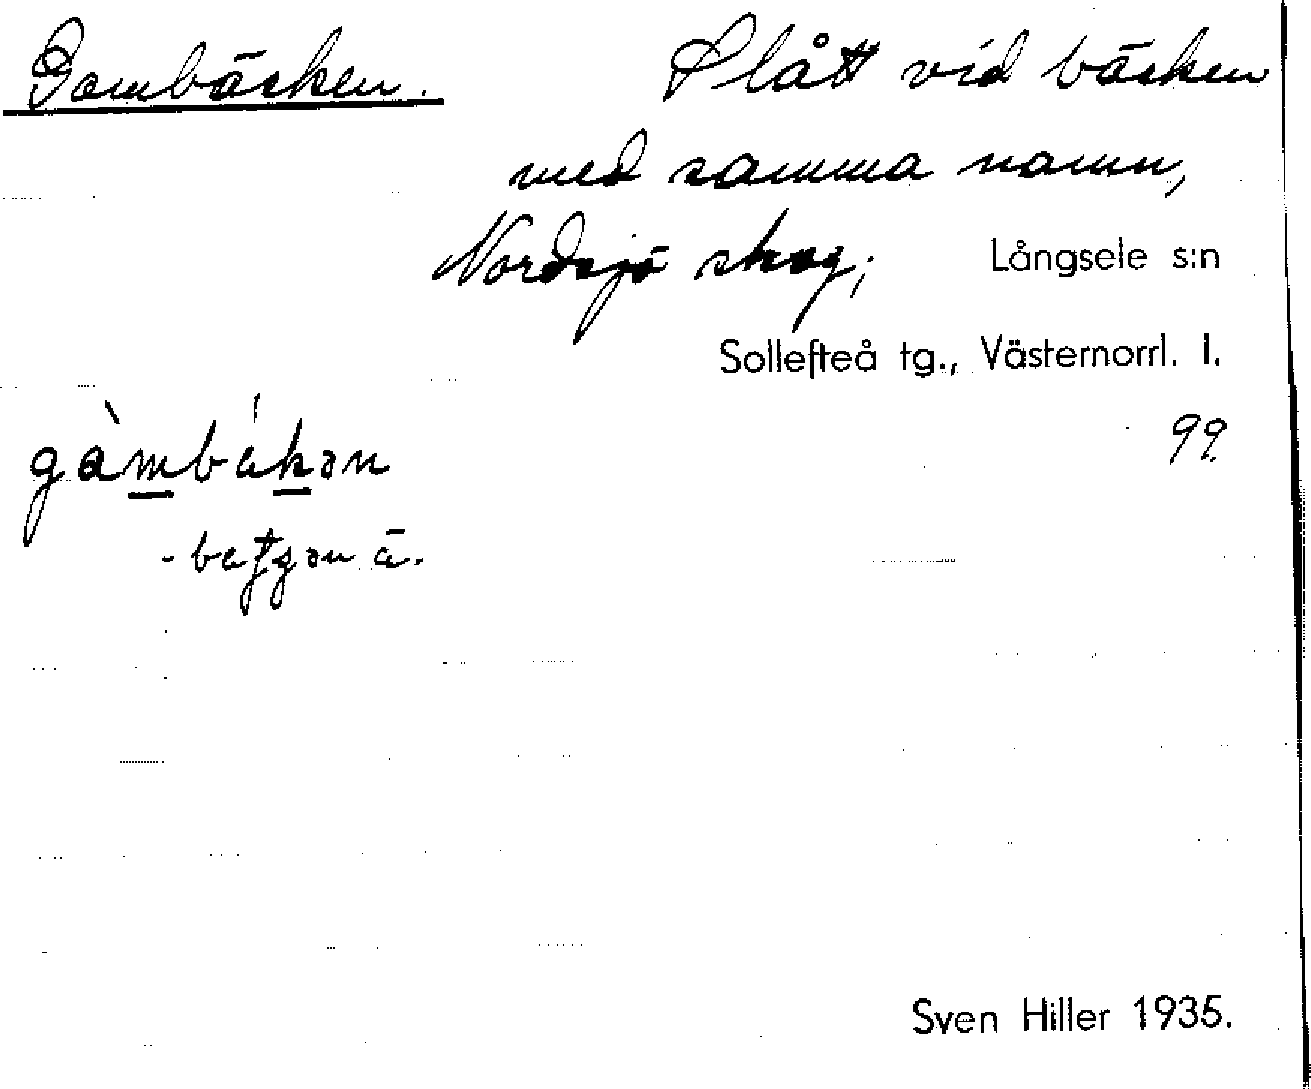 Gambäcken.
Slått vid bäcken
med samma namn,
Nordsjö skog; Långsele s:n
Sollefteå tg., Västernorrl. l.
99.
gàmbákən
ä.
Sven Hiller 1935.